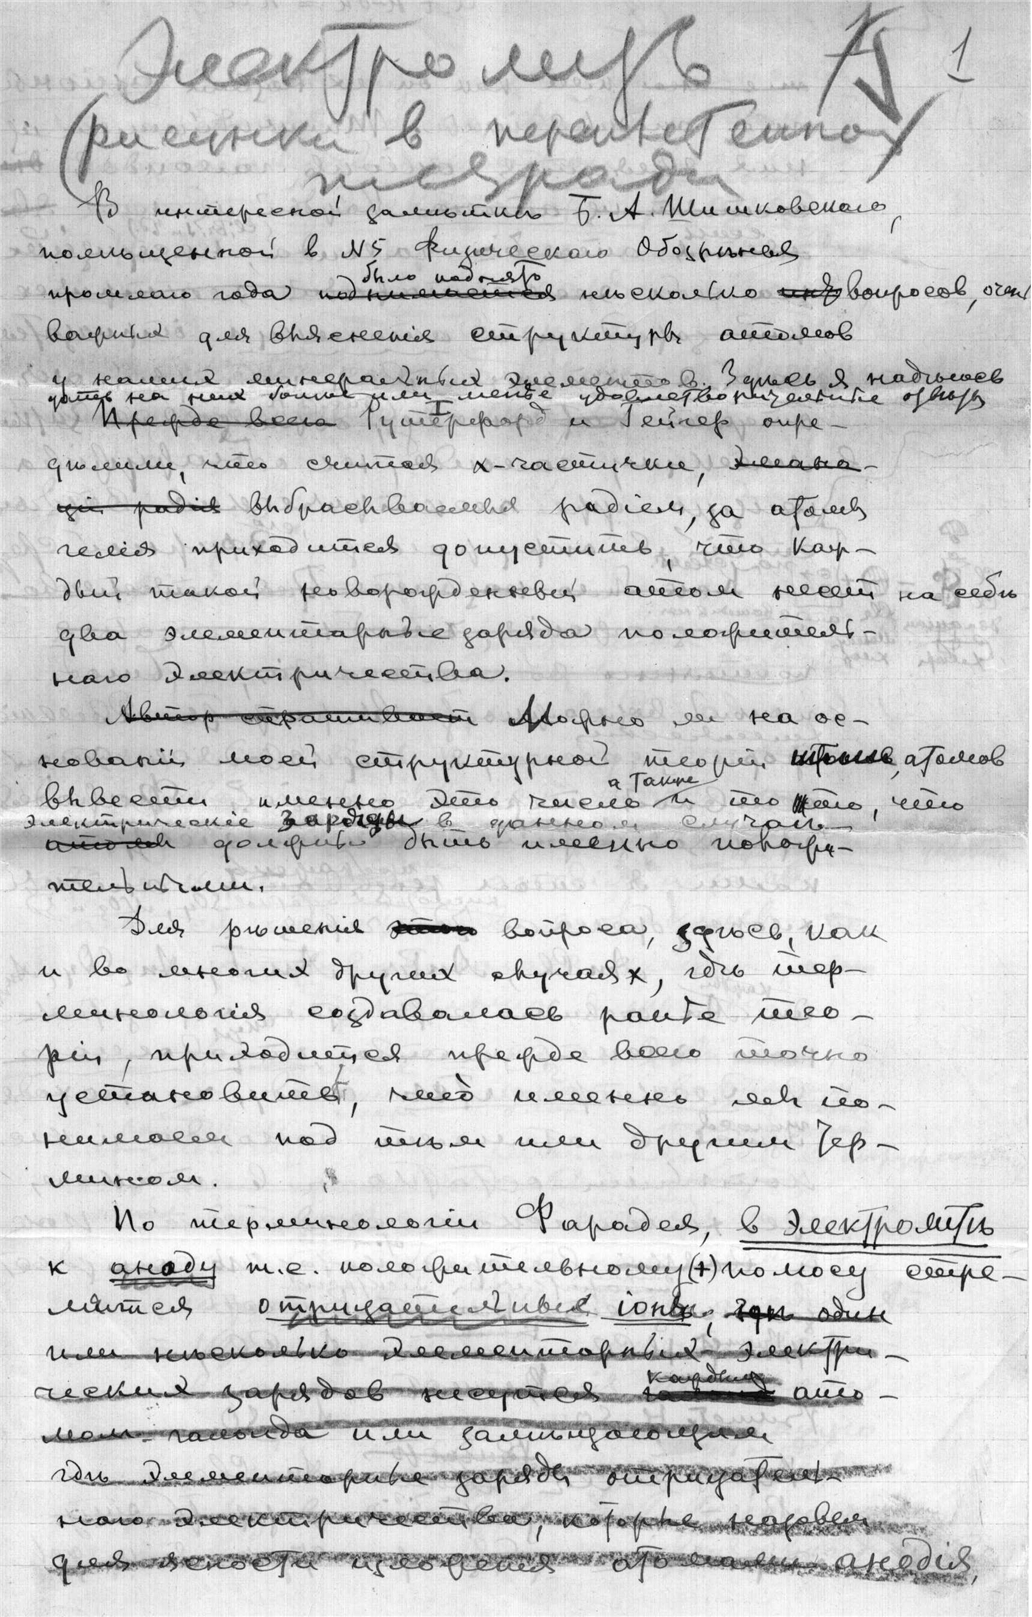 Электролизъ 1
(рисунки в переплетенной
тетради)
В интересной замѣткѣ Б. А. Шишковскаго,
помѣщенной в №5 Физическаго Обозрѣнія
было поднято
прошлаго года поднимается нѣсколько вопросов, очень
важных для выясненія структуры атомов
у наших минеральных элементов. Здѣсь я надѣюсь
дать на них болѣе или менѣе удовлетворительные отвѣты
Прежде всего Рутерфорд и Гейгер опре-
дѣлили, что считая х-частички, эмана-
ціи радія выбрасываемыя радіем, за атомы
гелія приходится допустить, что каж-
дый такой новорожденный атом несет на себѣ
два элементарные заряда положитель-
наго электричества.
Автор спрашивает Можно ли на ос-
нованіи моей структурной теоріи атомов
а также
вывести именно это число и то, что
электрическіе заряды в данном случаѣ
атомы должны быть именно положи-
тельными.
Для рѣшенія этого вопроса, здѣсь, как
и во многих других случаях, гдѣ тер-
минологія создавалась ранѣе тео-
ріи, приходится прежде всего точно
установить, что именно мы по-
нимаем под тѣм или другим тер-
мином.
По терминологіи Фарадея, в электролитѣ
к аноду т.е. положительному (+) полюсу стре-
мятся отрицательные іоны, гдѣ один
или нѣсколько элементарных электри-
ческих зарядов несутся каждым ато-
мом галоида или замѣщающим
гдѣ элементарные заряды отрицатель-
наго электричества, которые назовем
для ясности изложенія атомами анодія,